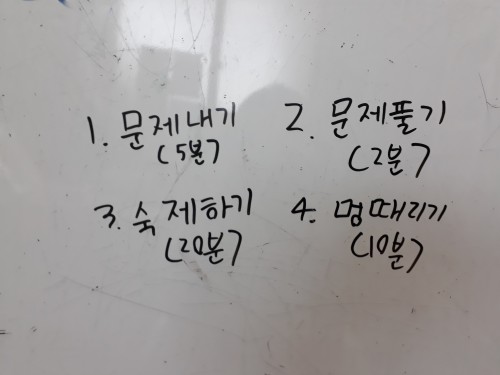 1. 문제내기
(5분)
2. 문제풀기
(2분)
3. 숙제하기
(20분)
4. 멍때리기
(10분)